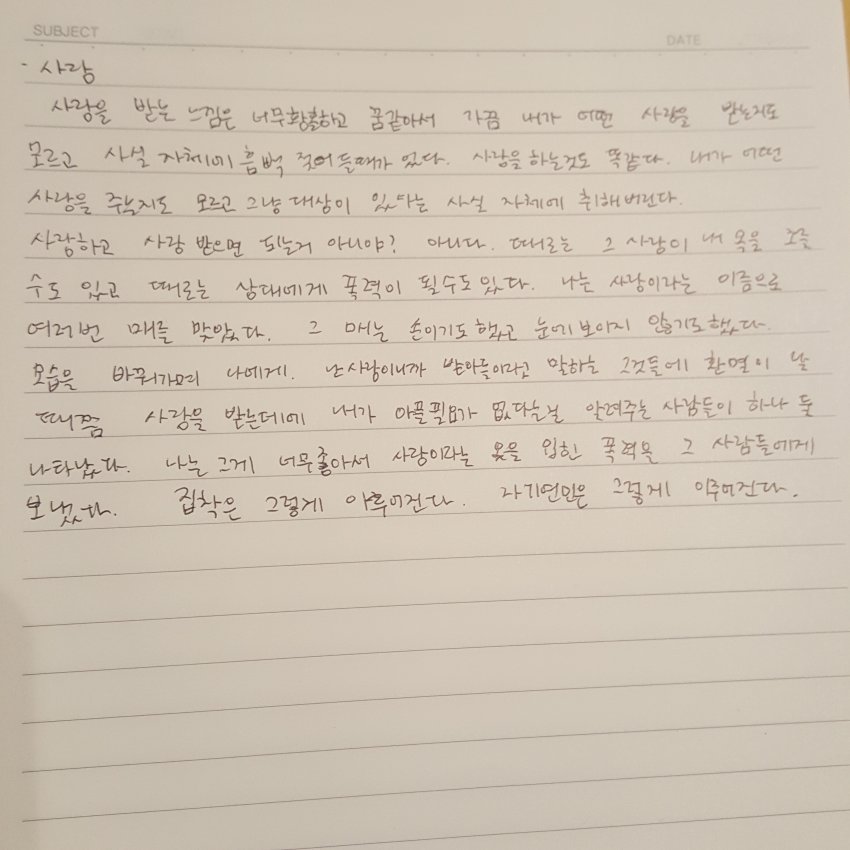 SUBJECT
DATE
- 사랑
사랑을 받는 느낌은 너무황홀하고 꿈같아서 가끔 내가 어떤 사랑을 받는지도
모르고 사실 자체에 흠뻑 젖어들때가 있다. 사랑을 하는것도 똑같다. 내가 어떤
사랑을 주는지도 모르고 그냥 대상이 있다는 사실 자체에 취해버린다.
사랑하고 사랑 받으면 되는거 아니야? 아니다. 때로는 그 사랑이 내 목을 조를
수도 있고 때로는 상대에게 폭력이 될수도 있다. 나는 사랑이라는 이름으로
여러번 매를 맞았다. 그 매는 손이기도 했고 눈에 보이지 않기도 했다.
모습을 바꿔가며 나에게. 난 사랑이니까 받아들이라고 말하는 그것들에 환멸이 날
때쯤 사랑을 받는데에 내가 아플필요가 없다는걸 알려주는 사람들이 하나 둘
나타났다. 나는 그게 너무좋아서 사랑이라는 옷을 입힌 폭력을 그 사람들에게
보냈다. 집착은 그렇게 이루어진다. 자기연민은 그렇게 이루어진다.